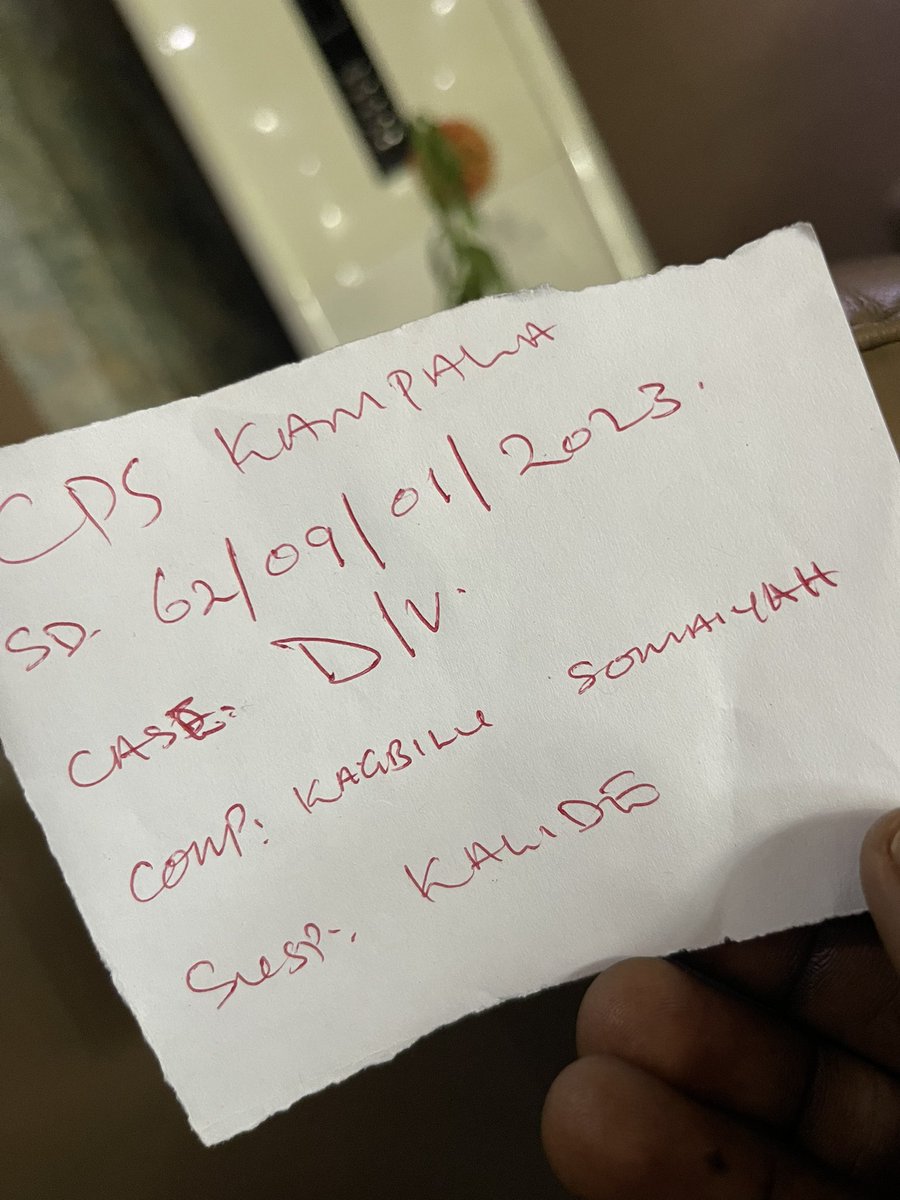 CPS KAMPALA
SD. 62/09/01/2023.
CASE: D/V.
COMP: KAGBILU SOMAIYAH
SUSP: KALIDE